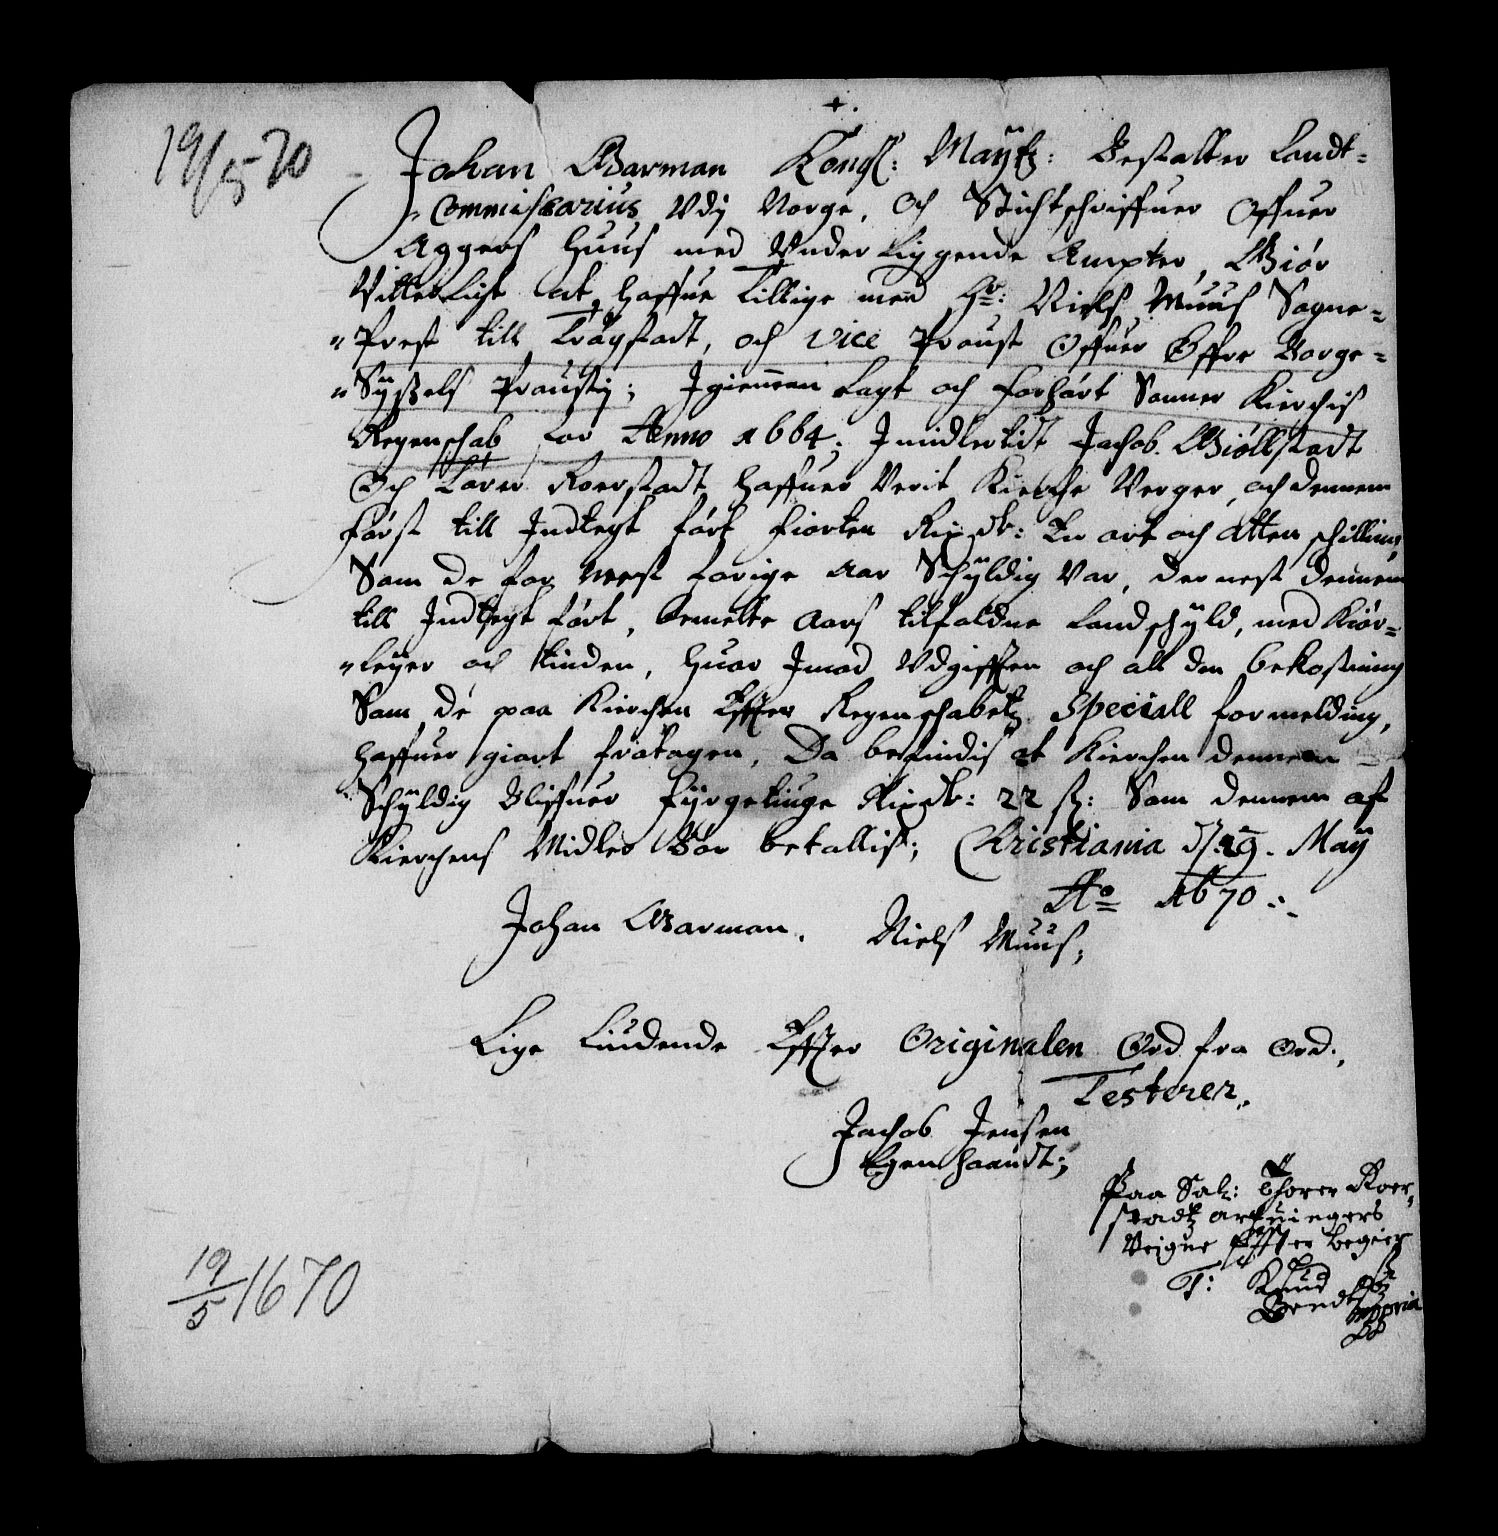 19/5 70
Johan Garman Kongl: Maÿtz: Bestalter Landt=
Commissarius Vdj Norge, och Stichtschriffuer Offuer
Aggers Huus med Vnder Liggende Ampter, Giør
Vitterligt at haffue Tillige med Hr: Niels Muus Sogne=
"Prest till Trøgstadt, och Vice Proust Offuer Øffre Borge=
"Sÿssels Proustj; Igiennem Lagt och forhørt Sonner Kierchis
Regenschab for Anno 1664; Imidlertidt Jachob Giøllstadt
Och Tårer Roerstadt haffuer Verit Kierche Verger, och dennem
først till Indtegt ført fiorten Rixdr: En ort och Atten schilling
Som de for nest forige Aar Schÿldig Var, der nest dennem
till Indtegt ført, bemelte Aars tilfaldne Landschÿld, med Kiør=
"leÿer och tinden, huor Imod Vdgifften och all den bekostning
Som de paa Kierchen Effter Regenschabetz Speciall formelding,
haffuer giort fratagen, Da befindis at Kierchen dennem
Schÿldig bliffuer fÿrgetiuge Rixdr: 22 ß: Som dennem af
Kierchens Midler bør betallis; Christiania d/19. Maÿ
Ao 1670
Johan Garman. Niels Muus;
Lige Liudende Effter Originalen Ord fra Ord.,
Testerer,,
Jachob Jensen
Egen haandt;
Paa Sal: Thorer Roer=
stadtz arfuingers
Veigne Effter begier
T: Knud
Bendtsen
mppria
19/5 1670